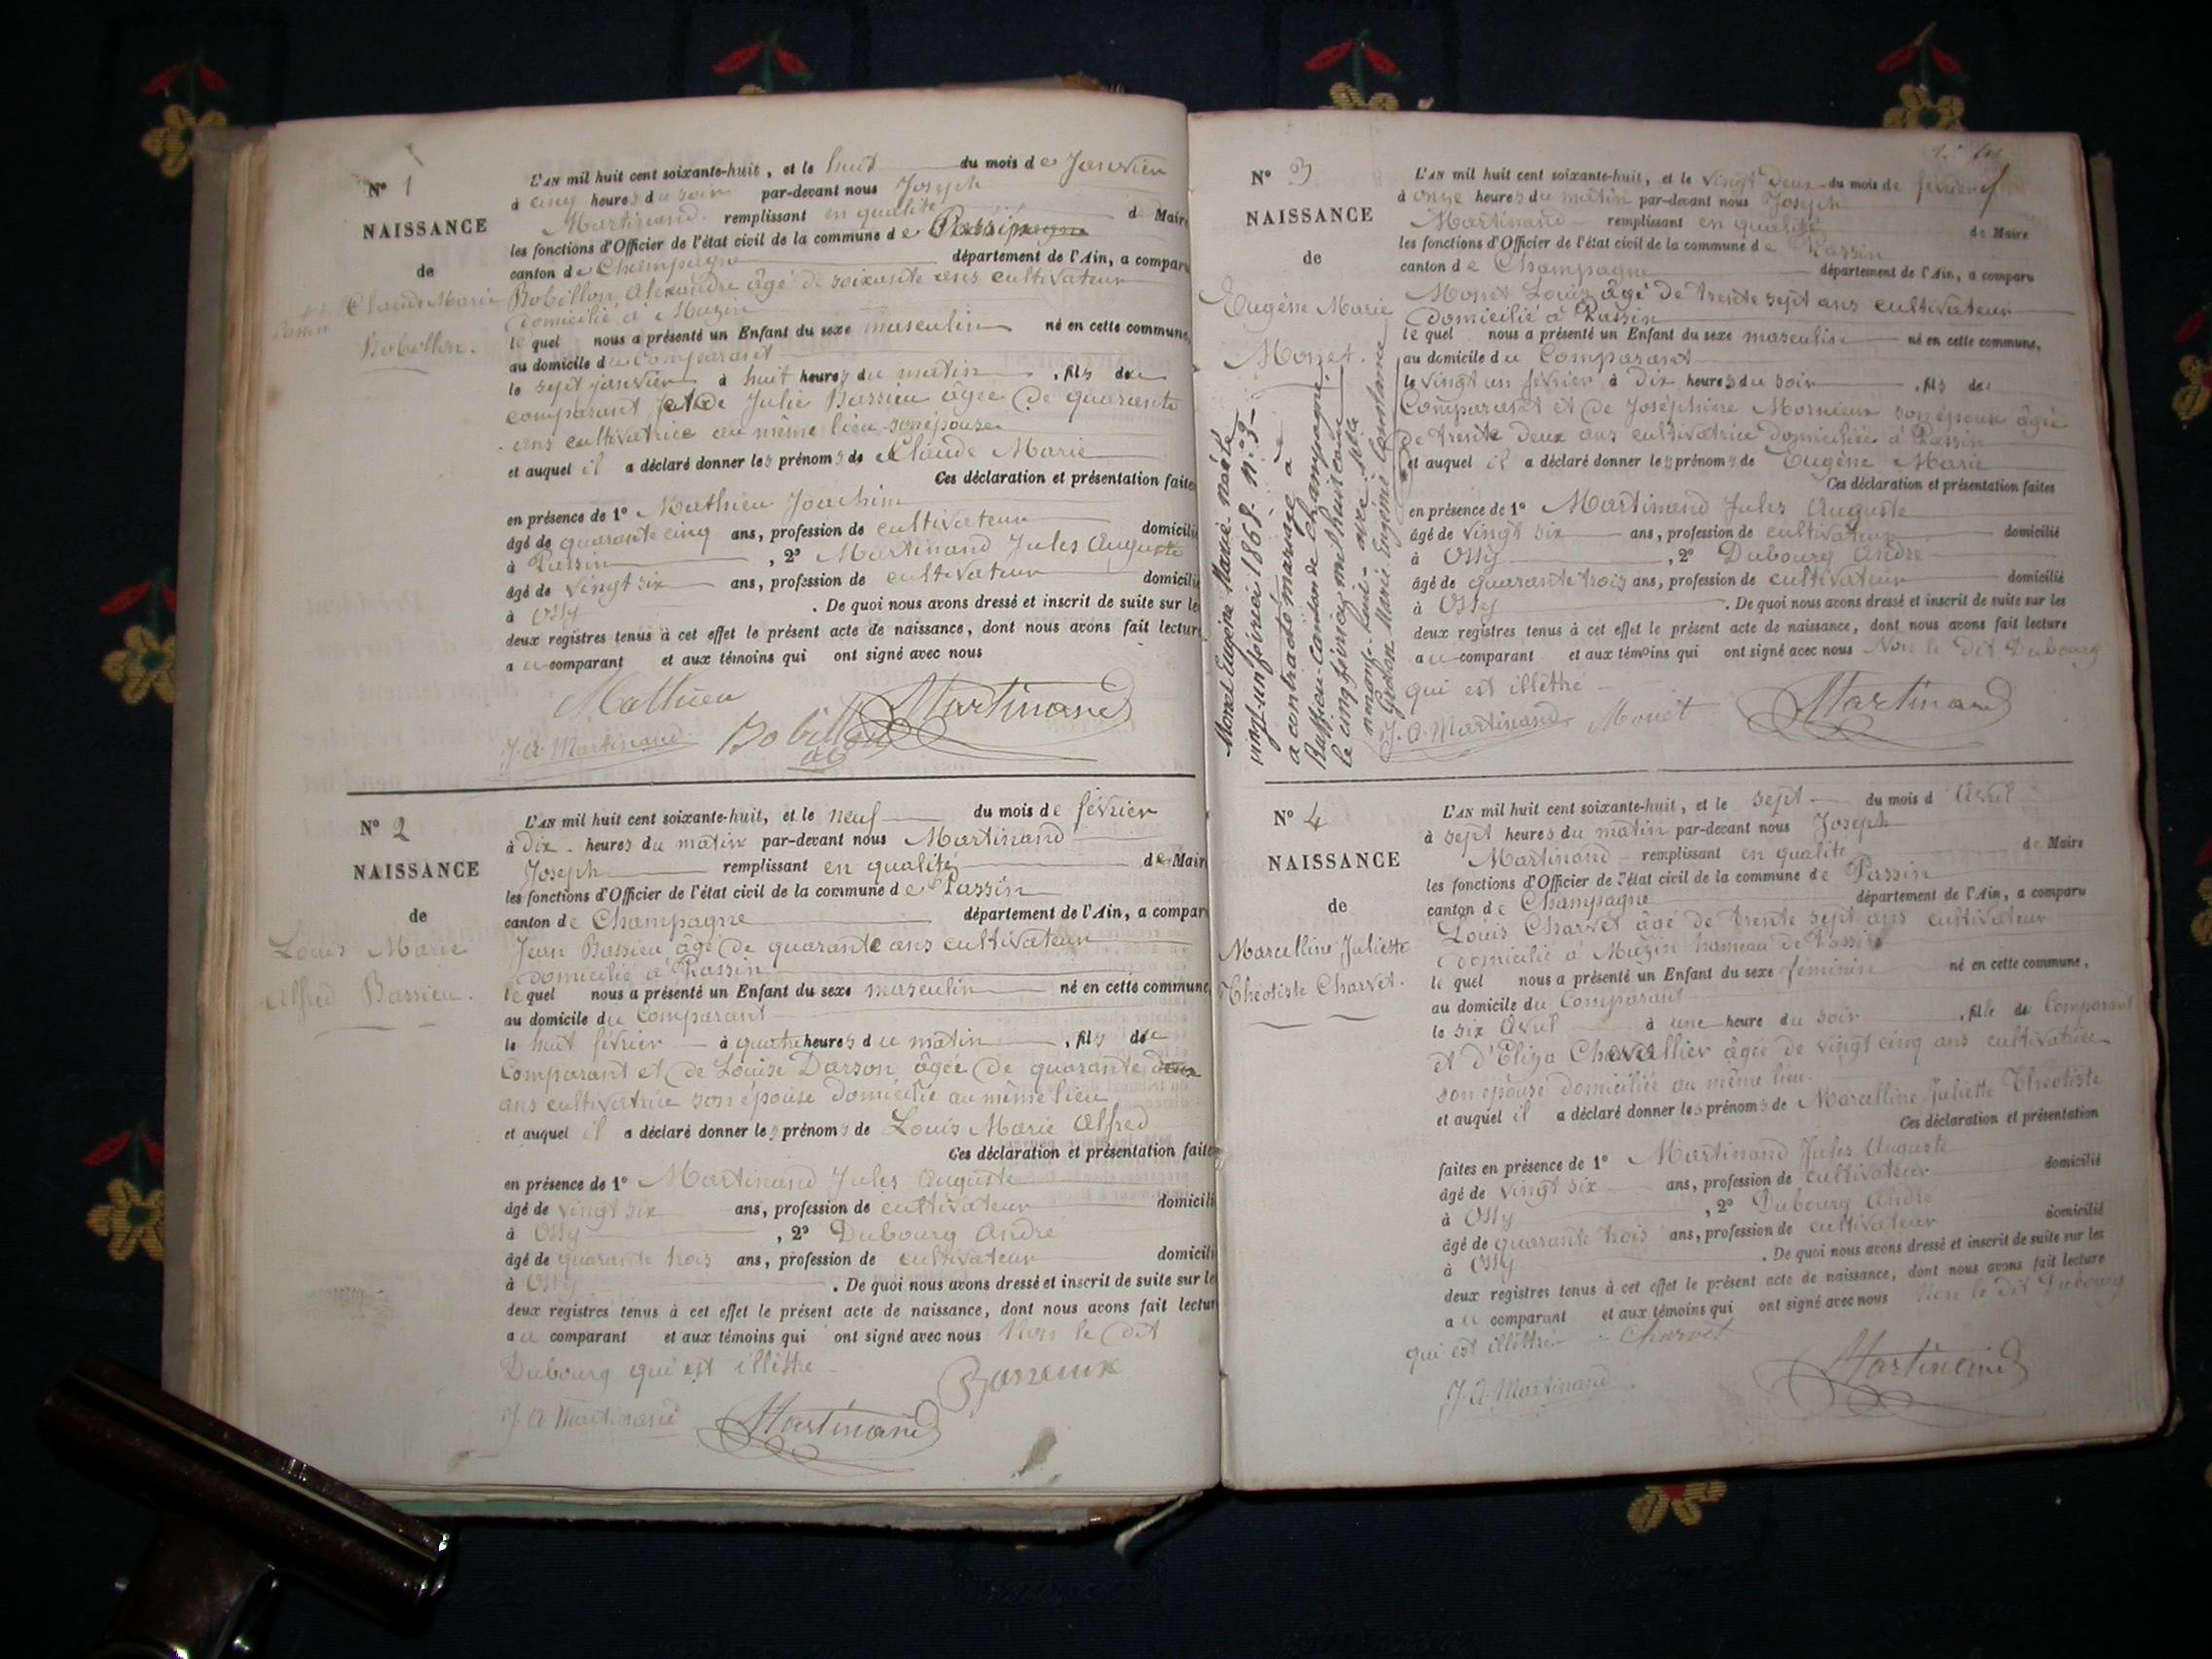 N° 1
NAISSANCE
de
Claude Marie
Bobillon.
L'AN mil huit cent soixante-huit, et le huit du mois de Janvier
à cinq heures du soir par-devant nous Joseph
Martinand remplissant en qualité de Maire
les fonctions d'Officier de l'état civil de la commune de Passin
canton de Champagne département de l'Ain, a comparu
Bobillon Alexandre âgé de soixante ans cultivateur
domicilié à Muzin
lequel nous a présenté un Enfant du sexe masculin né en cette commune,
au domicile du Comparant
le sept janvier à huit heures du matin, fils du
comparant et de Julie Bassieu âgée de quarante
ans cultivatrice au même lieu son épouse
et auquel il a déclaré donner les prénoms de Claude Marie
Ces déclaration et présentation faites
en présence de 1° Mathieu Joachim
âgé de quarante cinq ans, profession de cultivateur domicilié
à Passin, 2° Martinand Jules Auguste
âgé de vingt six ans, profession de cultivateur domicilié
à Ossy. De quoi nous avons dressé et inscrit de suite sur le
deux registres tenus à cet effet le présent acte de naissance, dont nous avons fait lecture
au comparant et aux témoins qui ont signé avec nous
Mathieu Martinand
J. A. Martinand Bobillon
N° 2
NAISSANCE
de
Louis Marie
Alfred Bassieu.
L'AN mil huit cent soixante-huit, et le neuf du mois de février
à dix heures du matin par-devant nous Martinand
Joseph remplissant en qualité de Maire
les fonctions d'Officier de l'état civil de la commune de Passin
canton de Champagne département de l'Ain, a comparu
Jean Bassieu âgé de quarante ans cultivateur
domicilié à Passin
lequel nous a présenté un Enfant du sexe masculin né en cette commune,
au domicile du Comparant
le huit février à quatre heures du matin, fils du
Comparant et de Louise Darson âgée de quarante deux
ans cultivatrice son épouse domiciliée au même lieu
et auquel il a déclaré donner les prénoms de Louis Marie Alfred
Ces déclaration et présentation faites
en présence de 1° Martinand Jules Auguste
âgé de vingt six ans, profession de cultivateur domicilié
à Ossy, 2° Dubourg André
âgé de quarante trois ans, profession de cultivateur domicilié
à Ossy. De quoi nous avons dressé et inscrit de suite sur le
deux registres tenus à cet effet le présent acte de naissance, dont nous avons fait lecture
au comparant et aux témoins qui ont signé avec nous Non le dit
Dubourg qui est illéttré
J. A. Martinand Martinand
N° 3
NAISSANCE
de
Eugène Marie
Monet.
Monet Eugène Marie né le
vingt-un février 1868. N° 3
a contracté mariage à
Ruffieu, Canton de Champagne,
le cinq février mil huit cent
Marie Eugénie Constance
L'AN mil huit cent soixante-huit, et le vingt deux du mois de février
à onze heures du matin par-devant nous Joseph
Martinand remplissant en qualité de Maire
les fonctions d'Officier de l'état civil de la commune de Passin
canton de Champagne département de l'Ain, a comparu
Monet Louis âgé de trente sept ans cultivateur
domicilié à Passin
le quel nous a présenté un Enfant du sexe masculin né en cette commune,
au domicile du Comparant
le vingt un février à dix heures du soir, fils du
Comparant et de Joséphine Mornieux son épouse âgée
de trente deux ans cultivatrice domiciliée à Passin
et auquel il a déclaré donner les prénoms de Eugène Marie
Ces déclaration et présentation faites
en présence de 1° Martinand Jules Auguste
âgé de vingt six ans, profession de cultivateur domicilié
à Ossy, 2° Dubourg André
âgé de quarante trois ans, profession de cultivateur domicilié
à Ossy. De quoi nous avons dressé et inscrit de suite sur les
deux registres tenus à cet effet le présent acte de naissance, dont nous avons fait lecture
au comparant et aux témoins qui ont signé avec nous Non le dit Dubourg
qui est illéttré
J. A. Martinand Monet Martinand
N° 4
NAISSANCE
de
Marcelline Juliette
Théotiste Charvet.
L'AN mil huit cent soixante-huit, et le sept du mois d'Avril
à sept heures du matin par-devant nous Joseph
Martinand remplissant en qualité de Maire
les fonctions d'Officier de l'état civil de la commune de Passin
canton de Champagne département de l'Ain, a comparu
Louis Charvet âgé de trente sept ans cultivateur
domicilié à Muzin hameau de Passin
le quel nous a présenté un Enfant du sexe féminin né en cette commune,
au domicile du Comparant
le six Avril à une heure du soir, fille du Comparant
et d'Eliza Chevallier âgée de vingt cinq ans cultivatrice
son épouse domiciliée au même lieu.
et auquel il a déclaré donner les prénoms de Marcelline Juliette Théotiste
Ces déclaration et présentation
faites en présence de 1° Martinand Jules Auguste
âgé de vingt six ans, profession de cultivateur domicilié
à Ossy, 2° Dubourg André
âgé de quarante trois ans, profession de cultivateur domicilié
à Ossy. De quoi nous avons dressé et inscrit de suite sur les
deux registres tenus à cet effet le présent acte de naissance, dont nous avons fait lecture
au comparant et aux témoins qui ont signé avec nous Non le dit Dubourg
qui est illéttré Charvet
J. A. Martinand Martinand